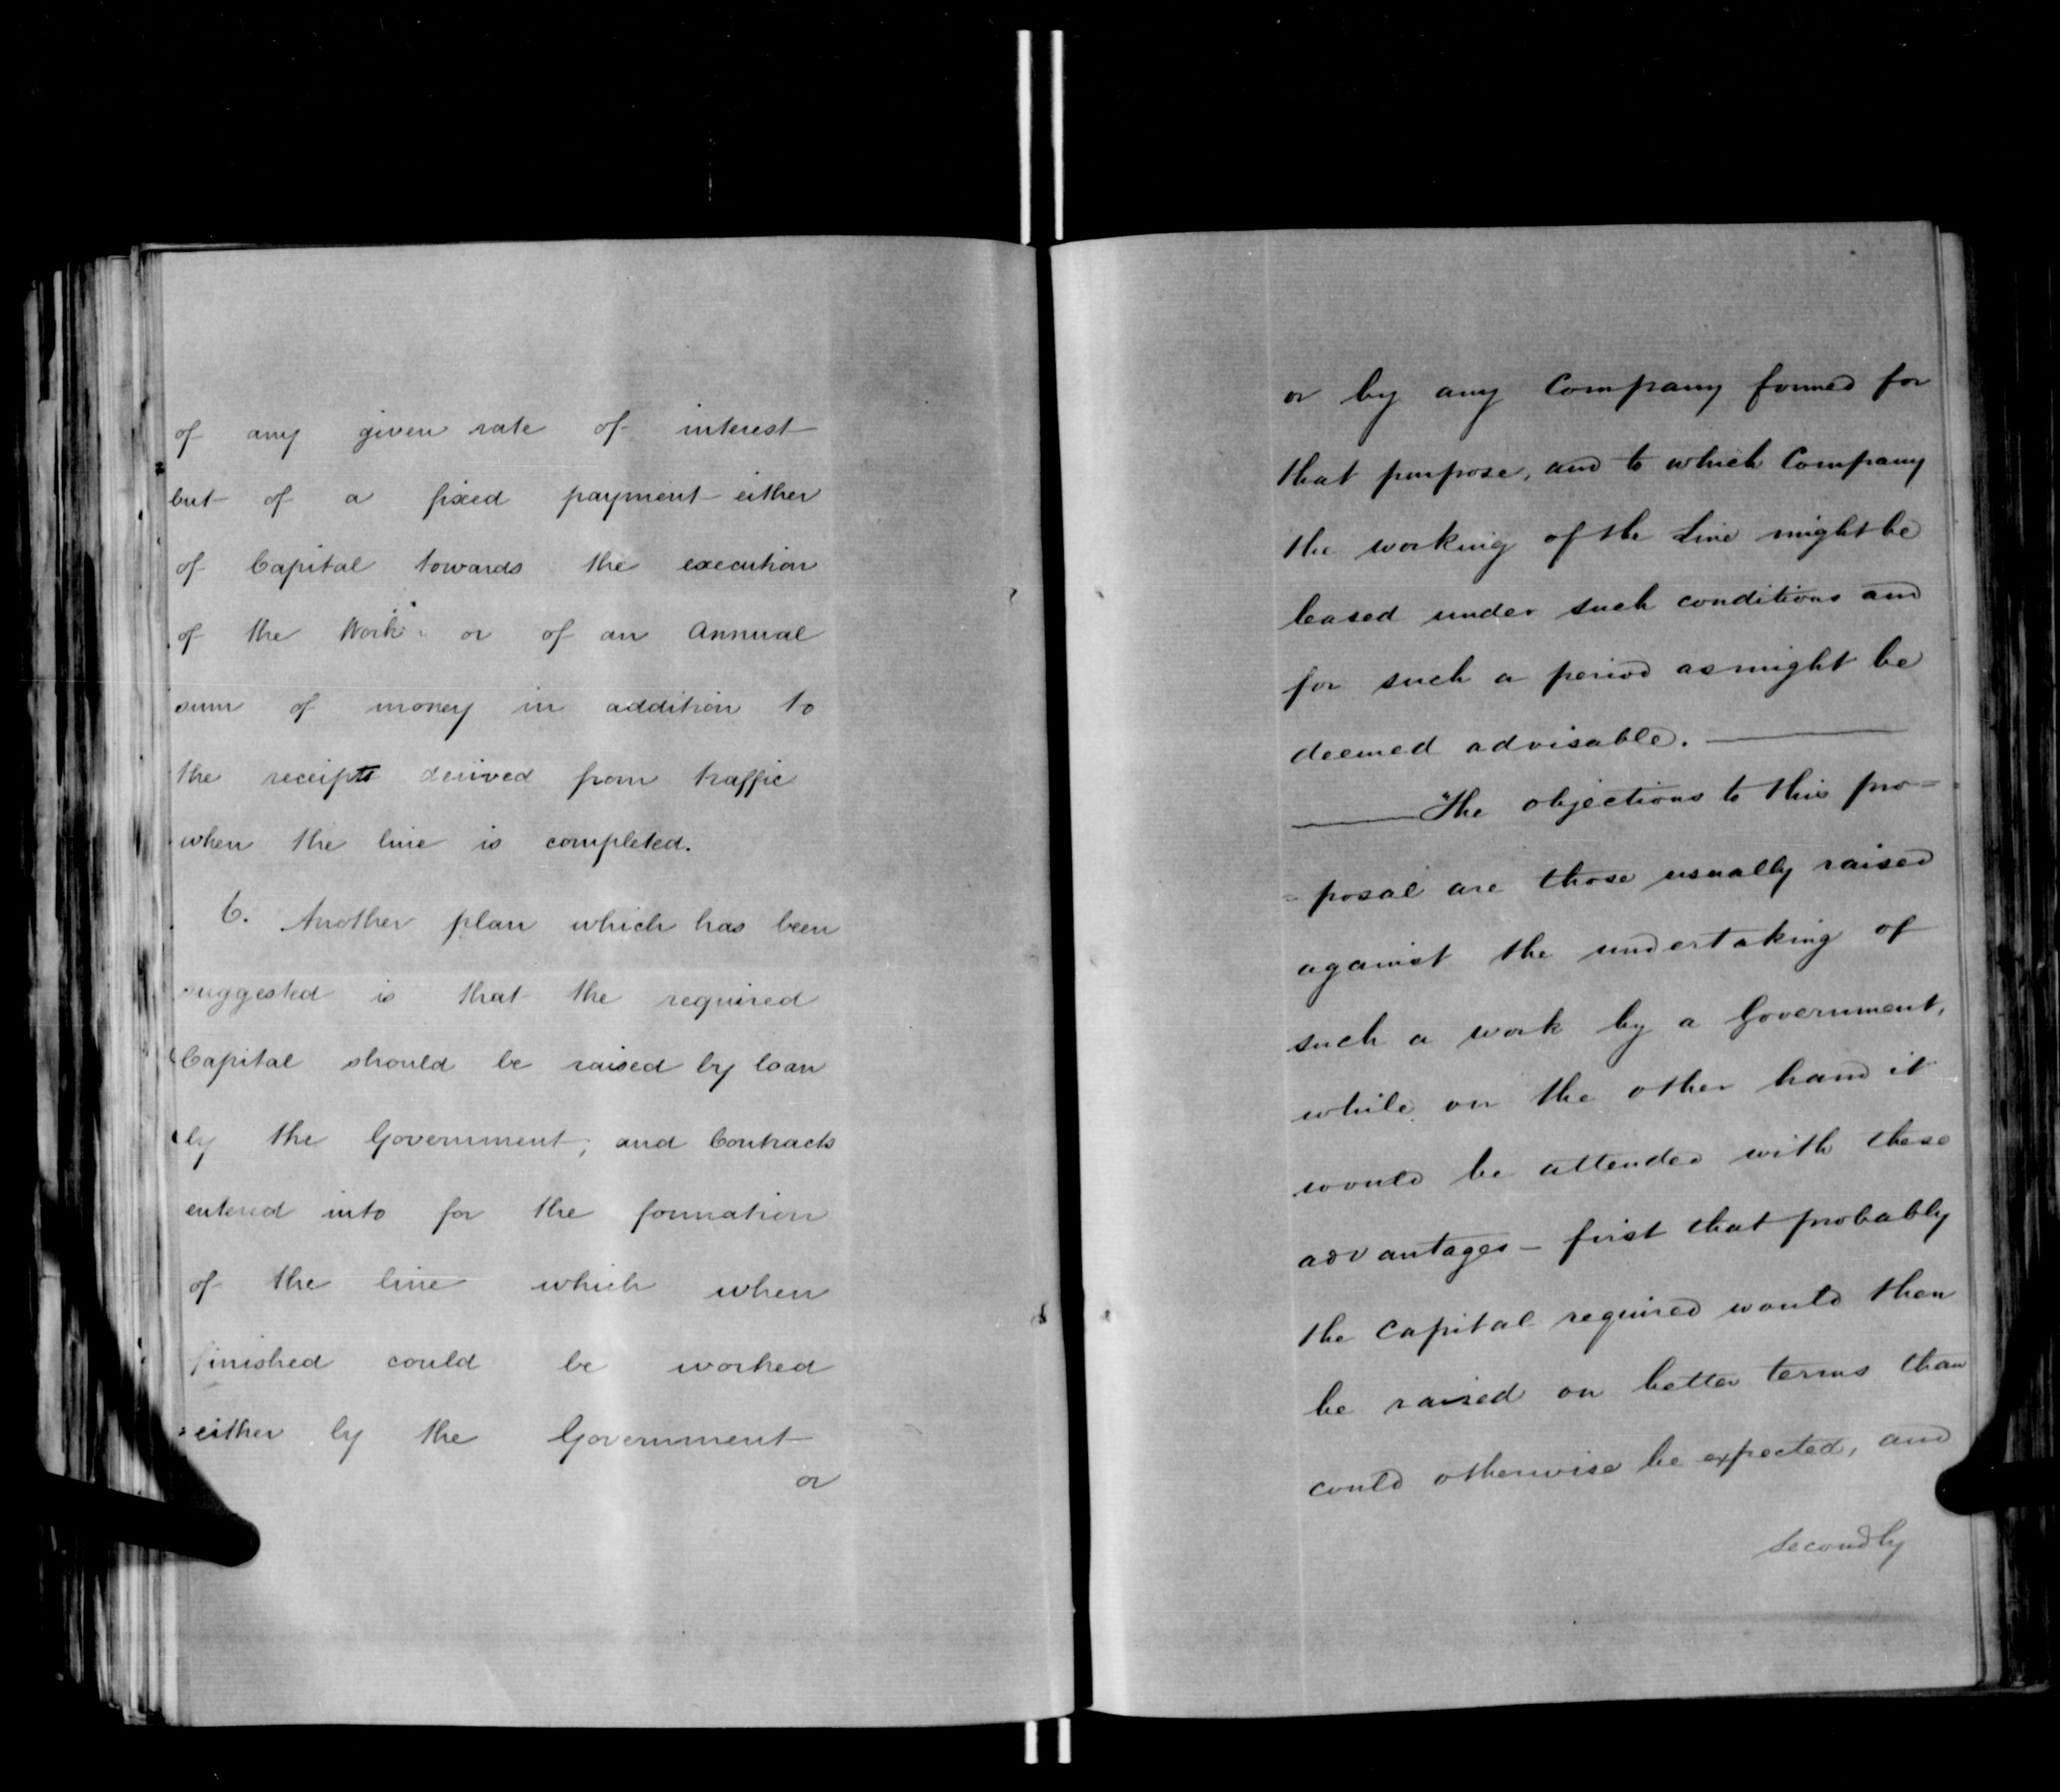 of any given rate of interest
but of a fixed payment either
of Capital towards the execution
of the Work or of an Annual
sum of money in addition to
the receipts derived from traffic
when the line is completed.
6. Another plan which has been
suggested is that the required
Capital should be raised by loan
by the Government, and Contracts
entered into for the formation
of the line which when
finished could be worked
either by the Government
or
or by any Company formed for
that purpose, and to which Company
the working of the Line might be
leased under such conditions and
for such a period as might be
deemed advisable. ———
——— The objections to this pro=
=posal are those usually raised
against the undertaking of
such a work by a Government,
while on the other hand it
would be attended with these
advantages – first that probably
the Capital required would then
be raised on better terms than
could otherwise be expected, and
secondly